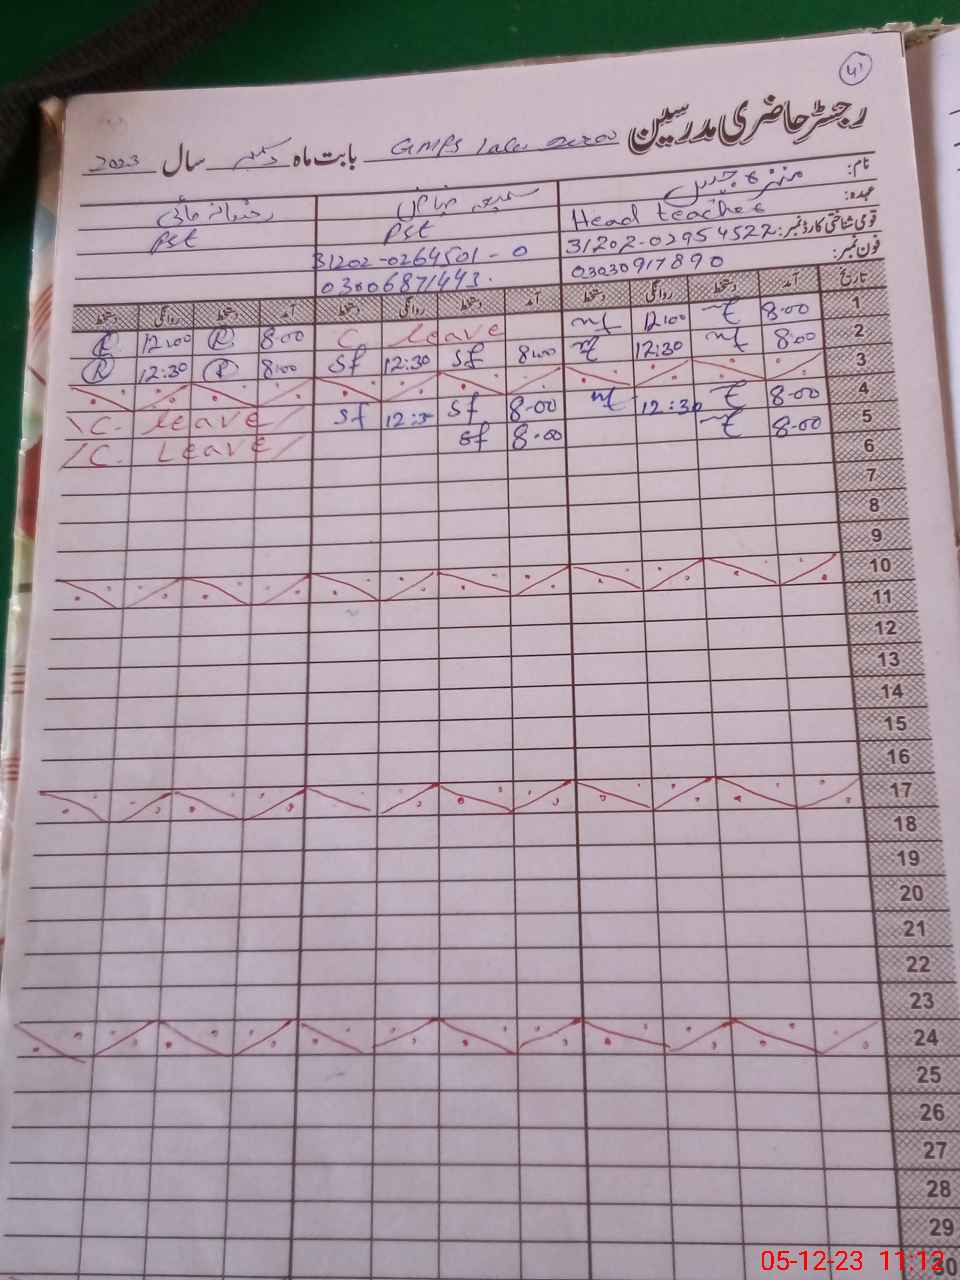 41
رجسٹر حاضری مدرسین GMPS بابت ماہ دسمبر سال 2023
نام:
عہدہ: Head teacher PST PST
قومی شناختی کارڈ نمبر: 31202-0295452 31202-0264501-0
فون نمبر: 03030917890 03006871443.
تاریخ آمد دستخط روانگی دستخط آمد دستخط روانگی دستخط آمد دستخط روانگی دستخط
1 8:00 12:00 C leave 8:00 R 12:00 R
2 8:00 12:30 8:00 sf 12:30 sf 8:00 R 12:30 R
3
4 8:00 12:30 8:00 sf sf C. leave
5 8:00 8:00 sf C. Leave
6
7
8
9
10
11
12
13
14
15
16
17
18
19
20
21
22
23
24
25
26
27
28
29
30
05-12-23 11:12